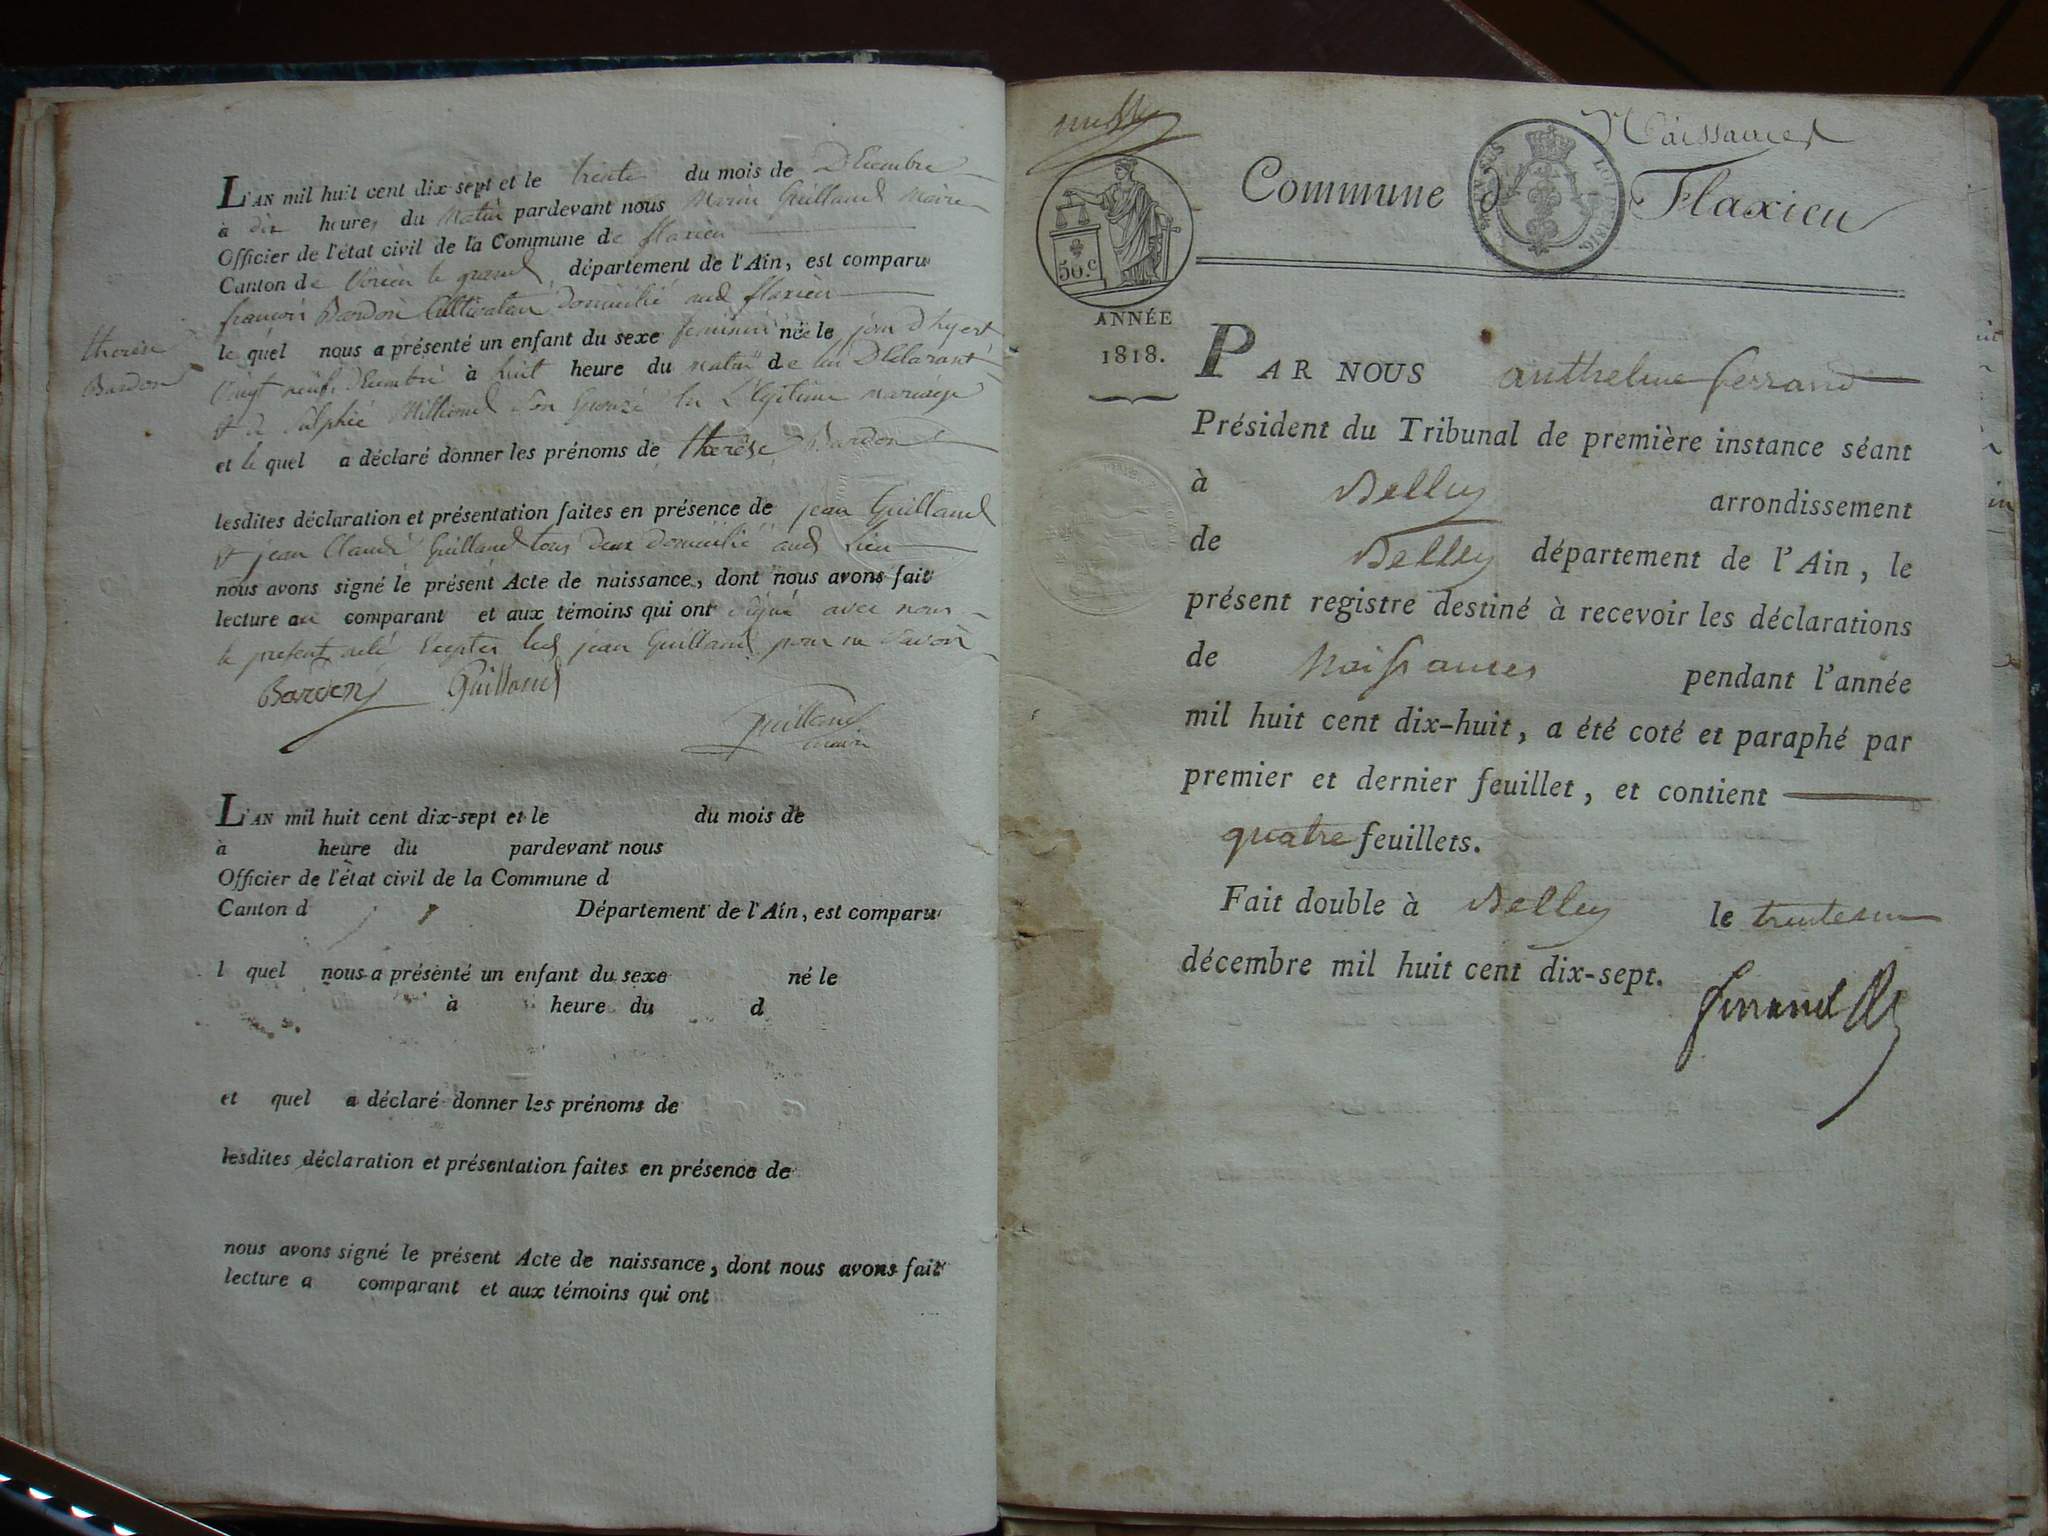 L'AN mil huit cent dix-sept et le trente du mois de Décembre
à dix heures du matin pardevant nous Guilland Maire
Officier de l'état civil de la Commune de flaxieu
Canton de Virieu le grand département de l'Ain, est comparu
françois Bardon Cultivateur domicilié aud flaxieu
le quel nous a présenté un enfant du sexe feminin née le jour d'hyert
vingt neuf Décembre à huit heure du matin de lui Déclarant
et de Millieret Son Epouze Légitime mariage
et le quel a déclaré donner les prénoms de therèse Bardon
lesdites déclaration et présentation faites en présence de jean Guilland
et jean Claude Guilland tous deux domicilié aud Lieu
nous avons signé le présent Acte de naissance, dont nous avons fait
lecture au comparant et aux témoins qui ont signé avec nous
le present acte Excepter led jean Guilland pour ne Savoir
Bardon Guilland
Guilland
maire
therèse
Bardon
L'AN mil huit cent dix-sept et le du mois de
à heure du pardevant nous
Officier de l'état civil de la Commune d
Canton d Département de l'Ain, est comparu
l quel nous a présenté un enfant du sexe né le
à heure du d
et quel a déclaré donner les prénoms de
lesdites déclaration et présentation faites en présence de
nous avons signé le présent Acte de naissance, dont nous avons fait
lecture a comparant et aux témoins qui ont
Naissances
Commune d Flaxieu
50.c
ANNÉE
1818.
PAR NOUS anthelme ferrand
Président du Tribunal de première instance séant
à Belley arrondissement
de Belley département de l'Ain, le
présent registre destiné à recevoir les déclarations
de Naissances pendant l'année
mil huit cent dix-huit, a été coté et paraphé par
premier et dernier feuillet, et contient
quatre feuillets.
Fait double à Belley le trente un
décembre mil huit cent dix-sept.
ferrand